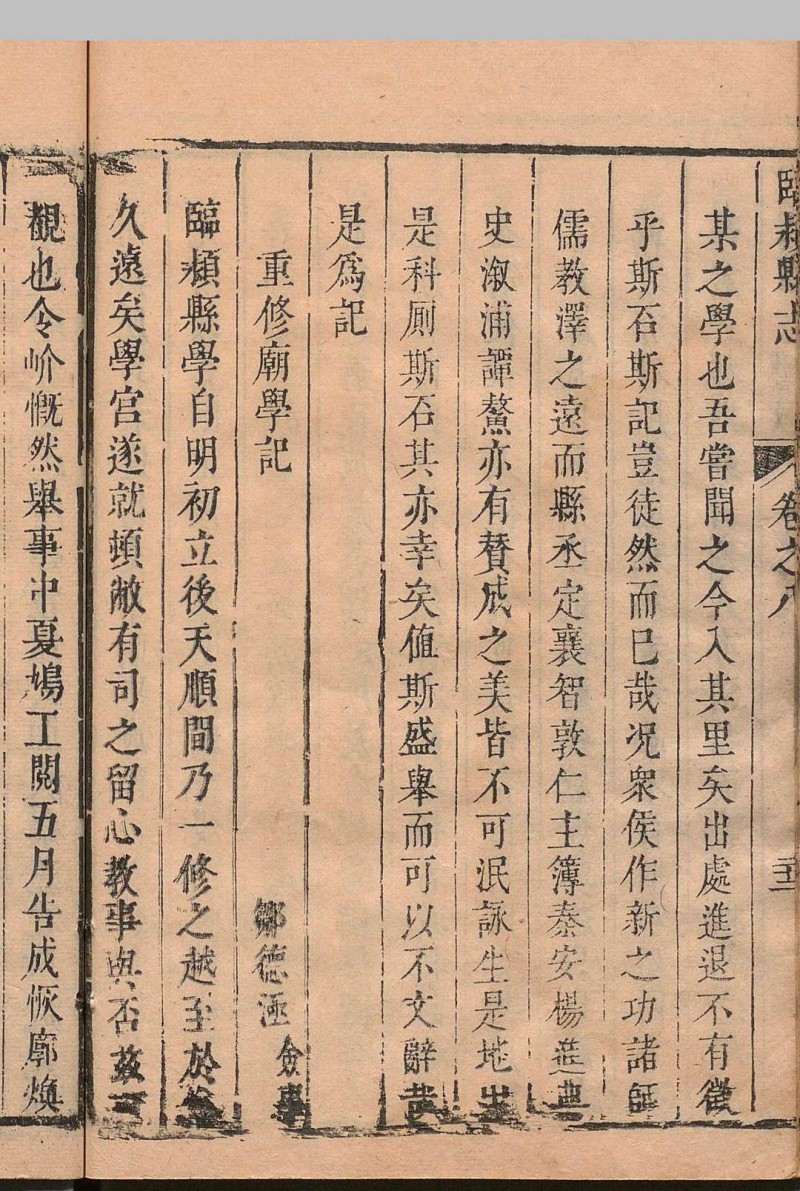 臨潁縣志 卷之八
某之學也吾嘗聞之今入其里矣出處進退不有徵
乎斯石斯記豈徒然而已哉况衆侯作新之功諸師
儒教澤之遠而縣丞定襄智敦仁主簿秦安楊進典
史溆浦譚鰲亦有賛成之美皆不可泯詠生是地出
是科厠斯石其亦幸矣值斯盛舉而可以不文辭哉
是爲記
重修廟學記 鄒德 僉事
臨潁縣學自明初立後天順間乃一修之越至於今
久遠矣學宫遂就頓敝有司之留心教事與否兹可
觀也令㞹慨然舉事中夏鳩工閱五月告成恢廓煥